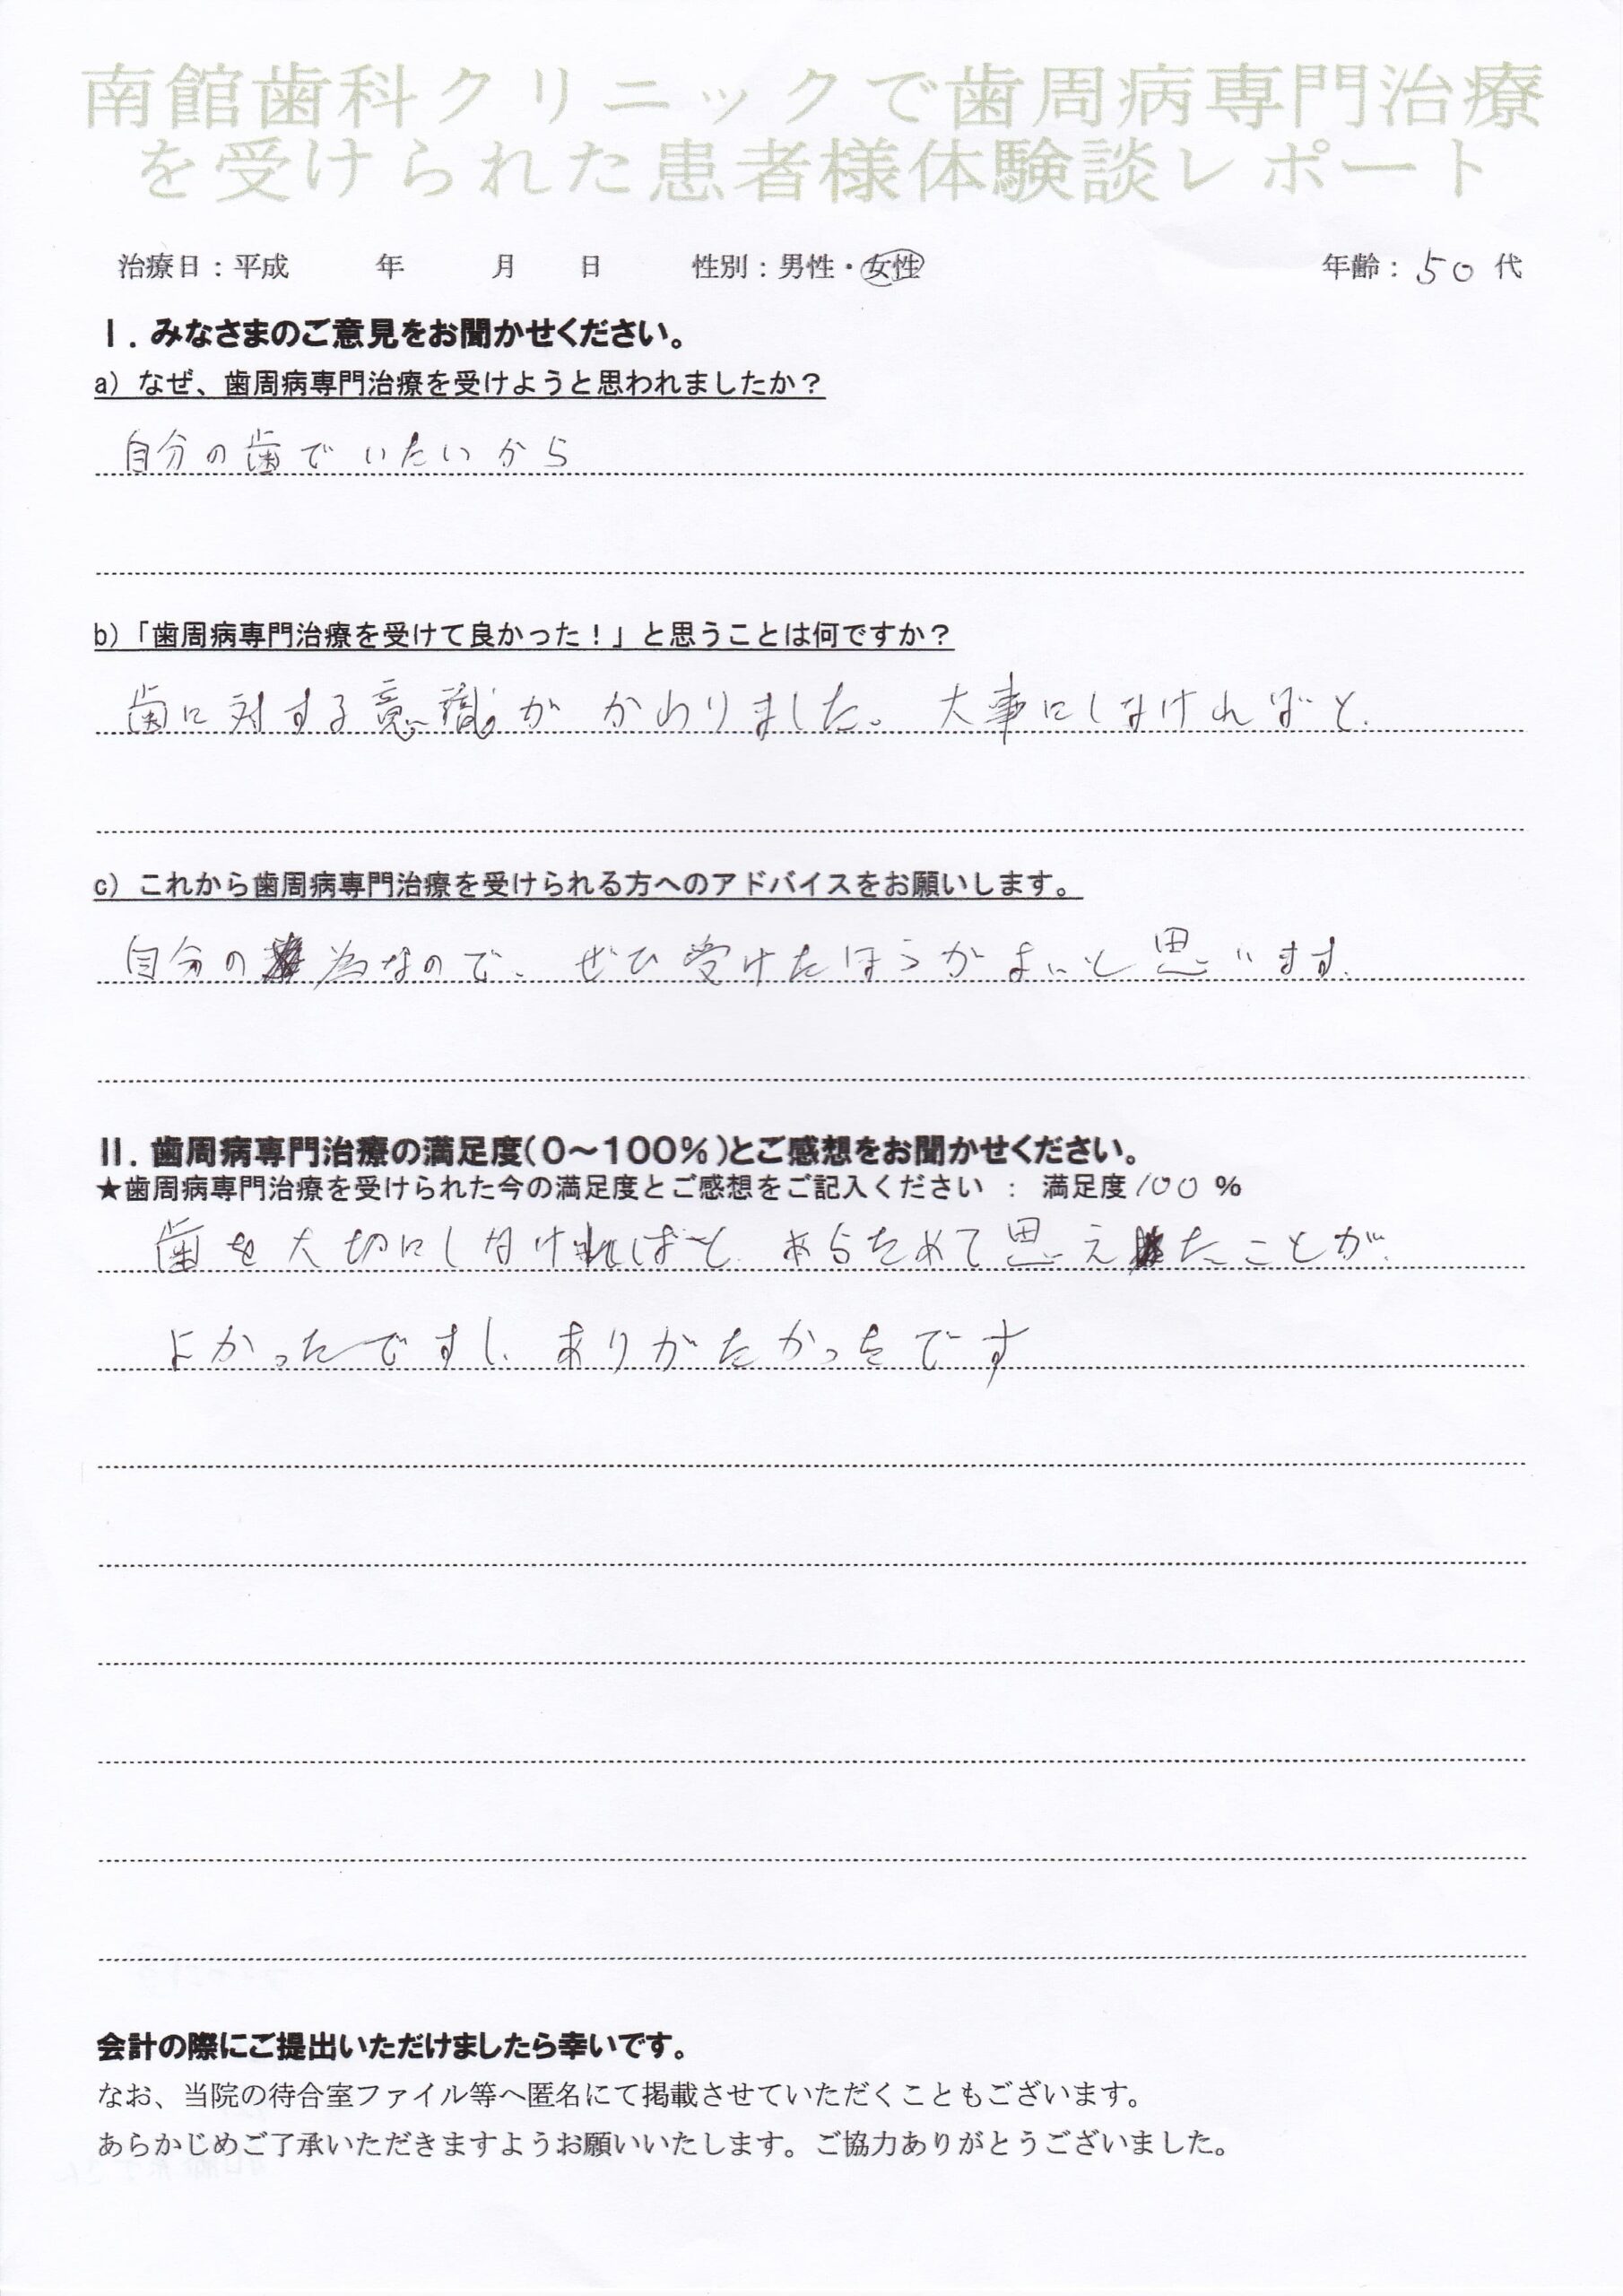 南館歯科クリニックで歯周病専門治療
を受けられた患者様体験談レポート
治療日：平成　年　月　日　性別：男性・女性　年齢：50代
Ⅰ．みなさまのご意見をお聞かせください。
a）なぜ、歯周病専門治療を受けようと思われましたか？
自分の歯でいたいから
b）「歯周病専門治療を受けて良かった！」と思うことは何ですか？
歯に対する意識がかわりました。大事にしなければと、
c）これから歯周病専門治療を受けられる方へのアドバイスをお願いします。
自分の為なので、ぜひ受けたほうがよいと思います。
Ⅱ．歯周病専門治療の満足度（0～100％）とご感想をお聞かせください。
★歯周病専門治療を受けられた今の満足度とご感想をご記入ください　：　満足度100％
歯を大切にしなければと、あらためて思えたことが、
よかったですし、ありがたかったです
会計の際にご提出いただけましたら幸いです。
なお、当院の待合室ファイル等へ匿名にて掲載させていただくこともございます。
あらかじめご了承いただきますようお願いいたします。ご協力ありがとうございました。